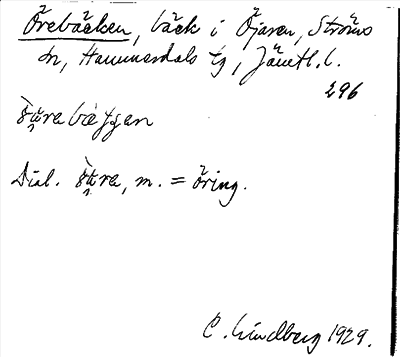 Örebäcken, bäck i Öjaren, Ströms
sn, Hammerdals tg, Jämtl. l.
296
Dial. m. = öring.
C. Lindberg 1929.